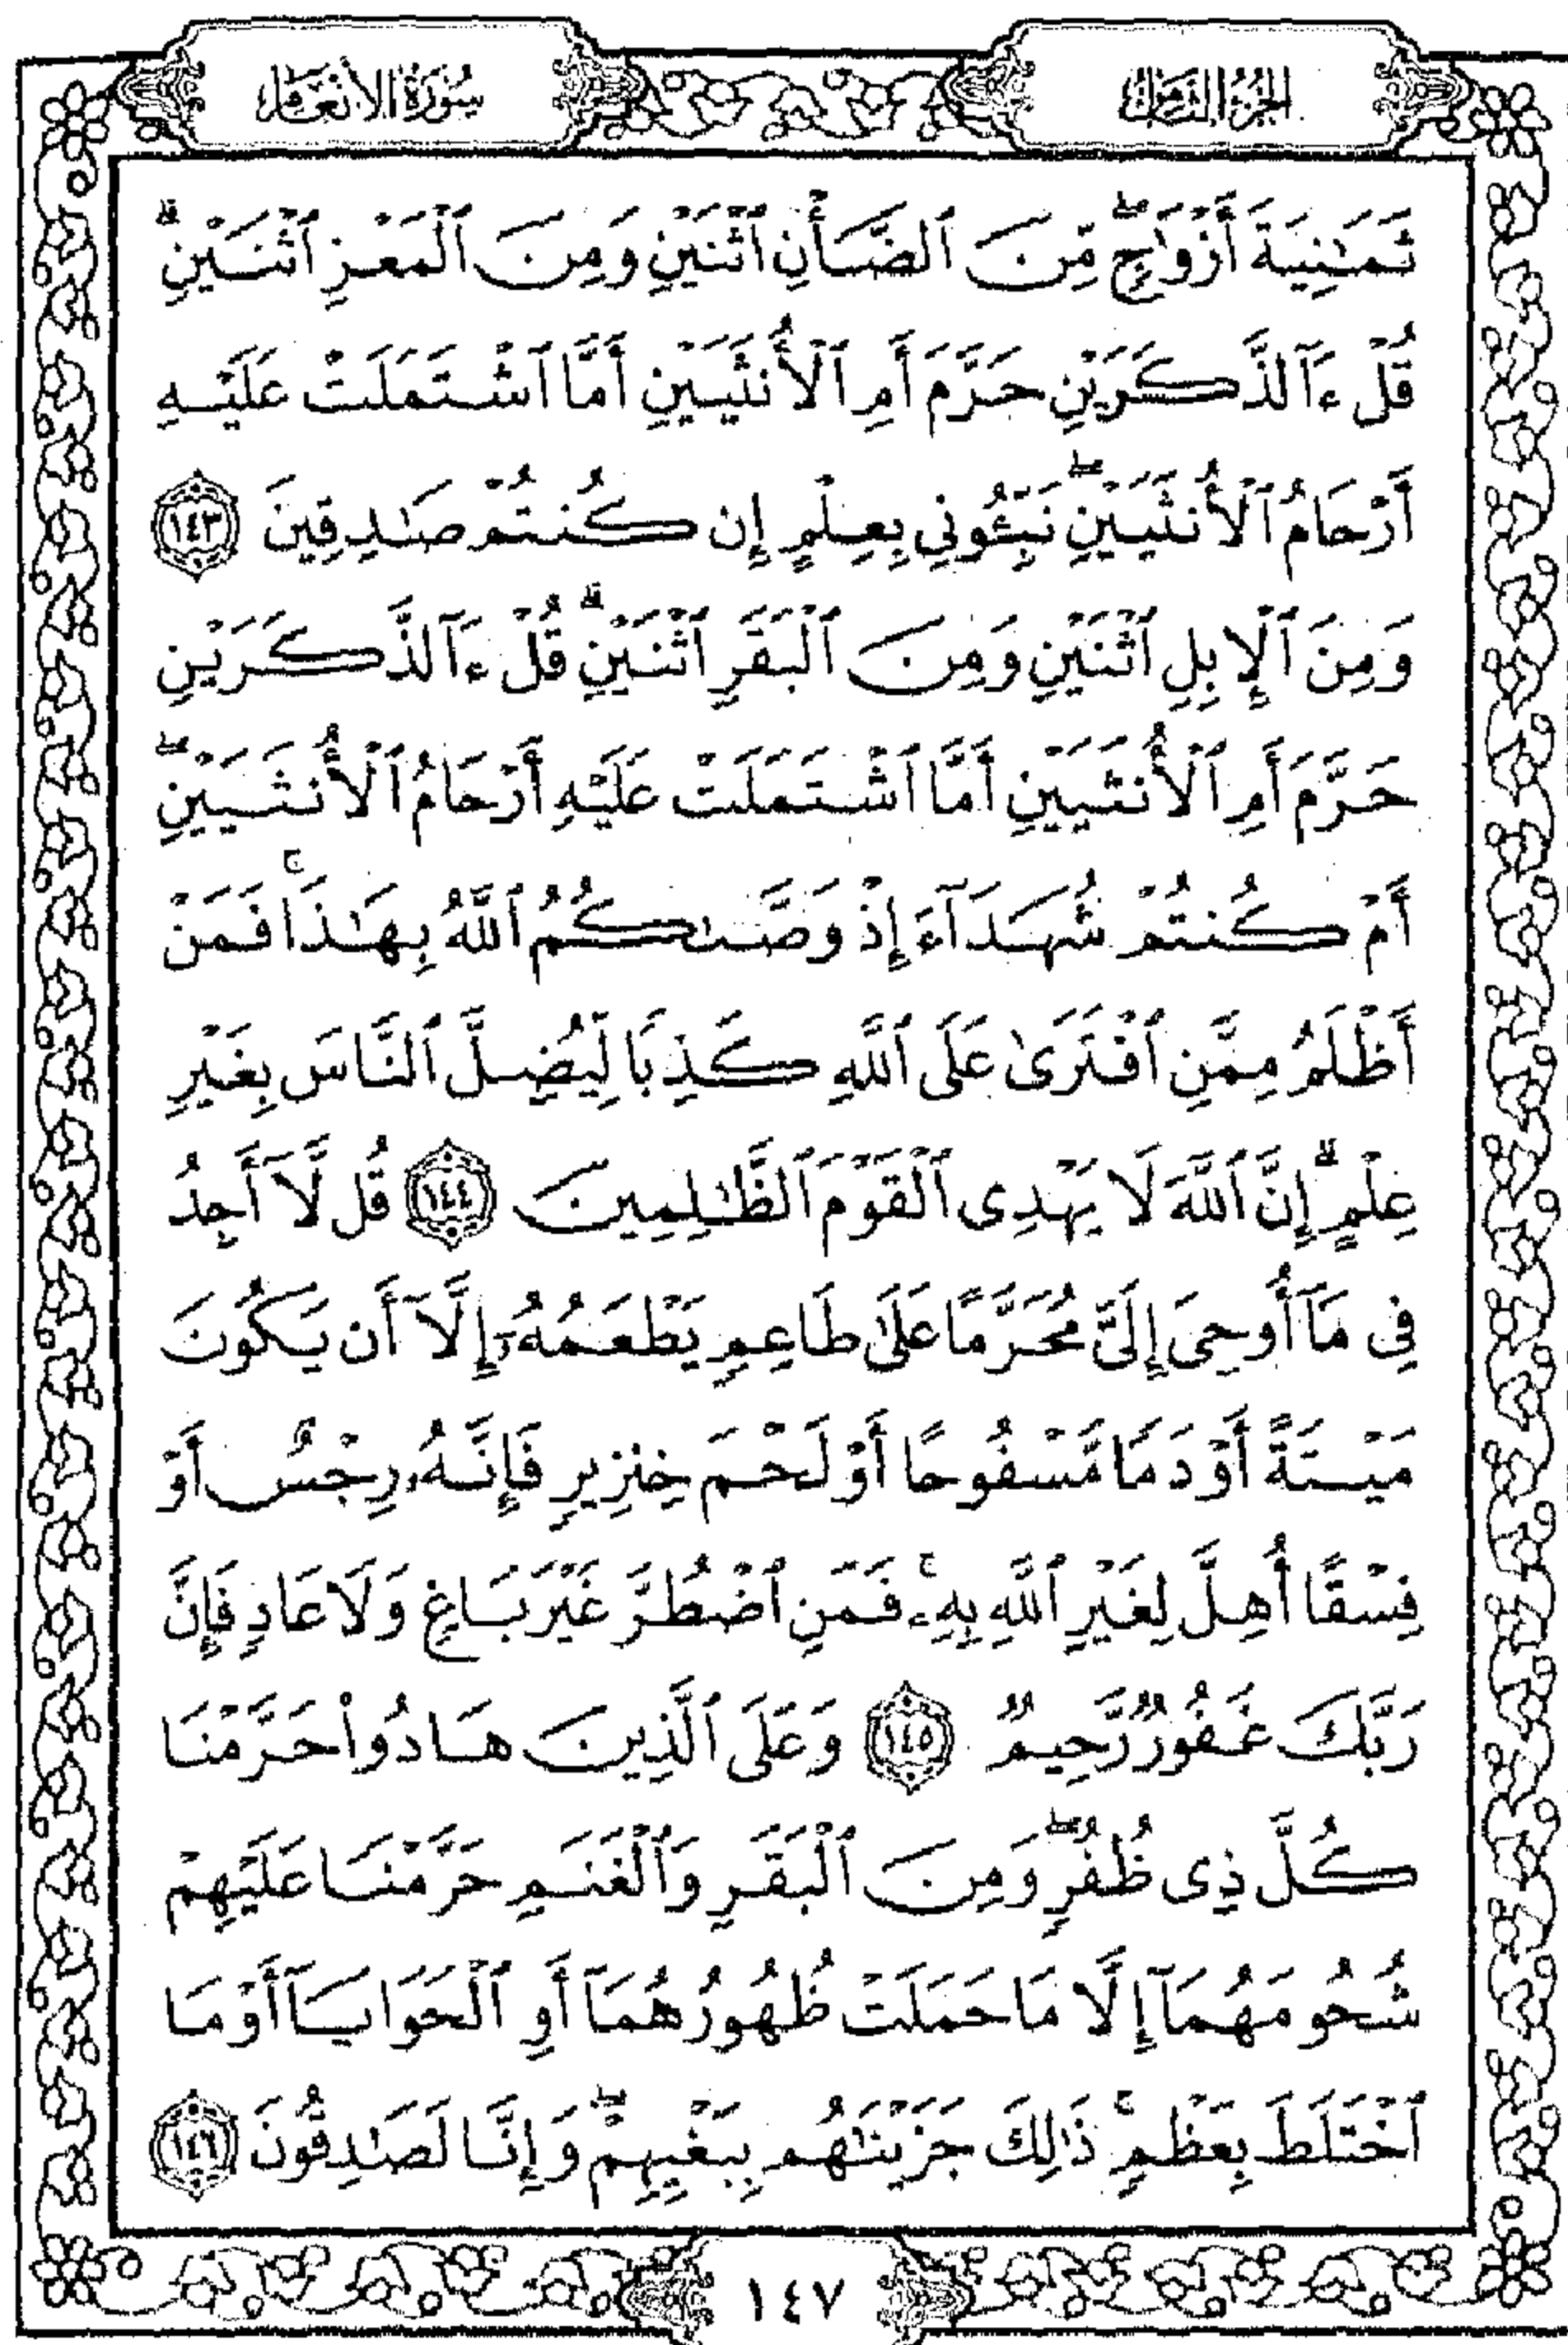 الجزء الثامن
سورة الأنعام
ثَمَٰنِيَةَ أَزْوَٰجٍۖ مِّنَ ٱلضَّأْنِ ٱثْنَيْنِ وَمِنَ ٱلْمَعْزِ ٱثْنَيْنِۗ
قُلْ ءَآلذَّكَرَيْنِ حَرَّمَ أَمِ ٱلْأُنثَيَيْنِ أَمَّا ٱشْتَمَلَتْ عَلَيْهِ
أَرْحَامُ ٱلْأُنثَيَيْنِۖ نَبِّـُٔونِي بِعِلْمٍ إِن كُنتُمْ صَٰدِقِينَ ١٤٣
وَمِنَ ٱلْإِبِلِ ٱثْنَيْنِ وَمِنَ ٱلْبَقَرِ ٱثْنَيْنِۗ قُلْ ءَآلذَّكَرَيْنِ
حَرَّمَ أَمِ ٱلْأُنثَيَيْنِ أَمَّا ٱشْتَمَلَتْ عَلَيْهِ أَرْحَامُ ٱلْأُنثَيَيْنِۖ
أَمْ كُنتُمْ شُهَدَآءَ إِذْ وَصَّىٰكُمُ ٱللَّهُ بِهَٰذَاۚ فَمَنْ
أَظْلَمُ مِمَّنِ ٱفْتَرَىٰ عَلَى ٱللَّهِ كَذِبًا لِّيُضِلَّ ٱلنَّاسَ بِغَيْرِ
عِلْمٍۗ إِنَّ ٱللَّهَ لَا يَهْدِى ٱلْقَوْمَ ٱلظَّٰلِمِينَ ١٤٤ قُل لَّآ أَجِدُ
فِى مَآ أُوحِىَ إِلَىَّ مُحَرَّمًا عَلَىٰ طَاعِمٍ يَطْعَمُهُۥٓ إِلَّآ أَن يَكُونَ
مَيْتَةً أَوْ دَمًا مَّسْفُوحًا أَوْ لَحْمَ خِنزِيرٍ فَإِنَّهُۥ رِجْسٌ أَوْ
فِسْقًا أُهِلَّ لِغَيْرِ ٱللَّهِ بِهِۦۚ فَمَنِ ٱضْطُرَّ غَيْرَ بَاغٍ وَلَا عَادٍ فَإِنَّ
رَبَّكَ غَفُورٌ رَّحِيمٌ ١٤٥ وَعَلَى ٱلَّذِينَ هَادُوا۟ حَرَّمْنَا
كُلَّ ذِى ظُفُرٍۖ وَمِنَ ٱلْبَقَرِ وَٱلْغَنَمِ حَرَّمْنَا عَلَيْهِمْ
شُحُومَهُمَآ إِلَّا مَا حَمَلَتْ ظُهُورُهُمَآ أَوِ ٱلْحَوَايَآ أَوْ مَا
ٱخْتَلَطَ بِعَظْمٍۚ ذَٰلِكَ جَزَيْنَٰهُم بِبَغْيِهِمْۖ وَإِنَّا لَصَٰدِقُونَ ١٤٦
١٤٧